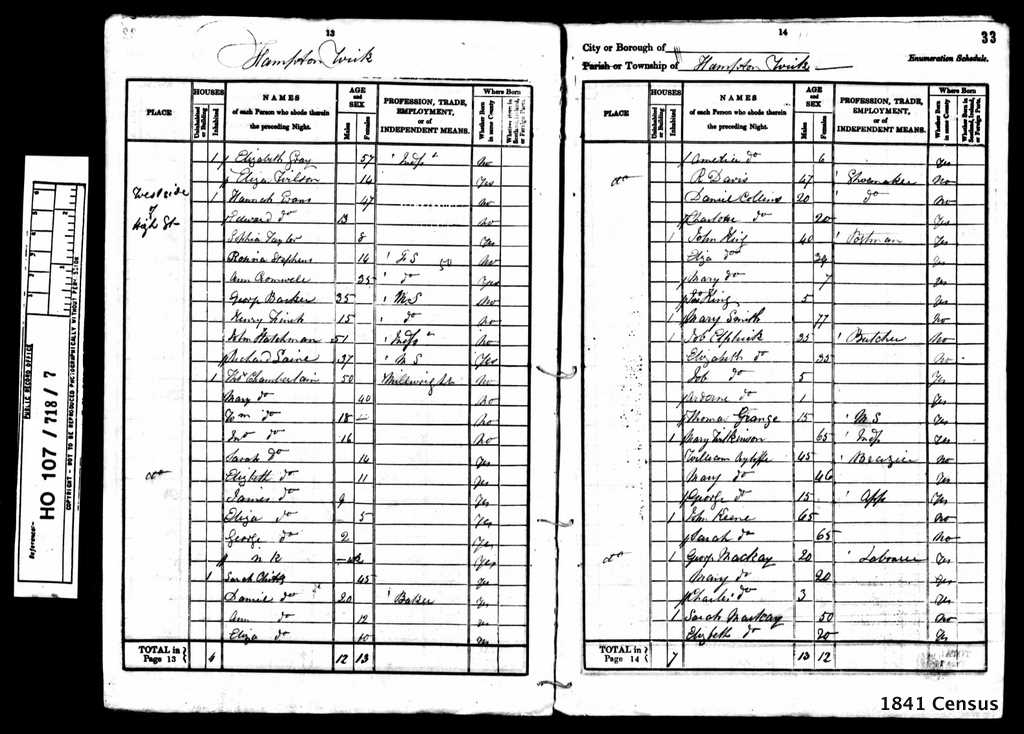 13
Hampton Wick
PLACE
HOUSES
Uninhabited or Building
Inhabited
NAMES
of each Person who abode therein
the preceding Night.
AGE
and
SEX
Males
Females
PROFESSION, TRADE,
EMPLOYMENT,
or of
INDEPENDENT MEANS.
Where Born
Whether Born in same County
Whether Born in Scotland, Ireland, or Foreign Parts.
1 Elizabeth Gray 57 No
Eliza Wilson 14 Yes
West side
of
High St
1 Hannah Evans 47 No
Edward do 13 No
Sophia Taylor 8 Yes
Stephens 16 F S No
Ann Cromwell 25 do Yes
George Barker 35 M S No
Henry Finch 15 do No
John Hutchman 51 No
Richard 37 M S Yes
1 Thos Chamberlain 50 Millwright No
Mary do 40 No
Wm do 18 No
Jno do 16 No
Sarah do 14 Yes
do
Elizbeth do 11 Yes
James do 9 Yes
Eliza do 5 Yes
George do 2 Yes
n k Yes
1 Sarah 45 Yes
Daniel do 20 Baker Yes
Ann do 12 Yes
Eliza do 10
TOTAL in
Page 13
4 12 13
14
33
City or Borough of
Parish or Township of Hampton Wick
Enumeration Schedule.
PLACE
HOUSES
Uninhabited or Building
Inhabited
NAMES
of each Person who abode therein
the preceding Night.
AGE
and
SEX
Males
Females
PROFESSION, TRADE,
EMPLOYMENT,
or of
INDEPENDENT MEANS.
Where Born
Whether Born in same County
Whether Born in Scotland, Ireland, or Foreign Parts.
do 6 Yes
do
R Davis 47 Shoemaker No
Daniel Collins 20 do No
Charlotte do 20 Yes
1 John King 40 Postman Yes
Eliza do Yes
Mary do 7 Yes
King 5 Yes
1 Mary Smith 77 No
1 Job 35 Butcher No
Elizabeth do 35 No
Job do 5 Yes
do 1 Yes
Thomas Grange 15 M S Yes
1 Mary Wilkinson 65 Yes
William Ayliffe 45 No
Mary do 46 Yes
George do 15 App Yes
1 John Keene 65 No
Sarah do 65 No
do
1 George Mackay 20 Labourer Yes
Mary do 20 Yes
Charles do 3 Yes
1 Sarah Mackay 50 No
Elizbeth do 20 Yes
TOTAL in
Page 14
7 13 12
PUBLIC RECORD OFFICE
Reference:-
HO 107 / 718 / 7
COPYRIGHT - NOT TO BE REPRODUCED PHOTOGRAPHICALLY WITHOUT PERMISSION
1841 Census